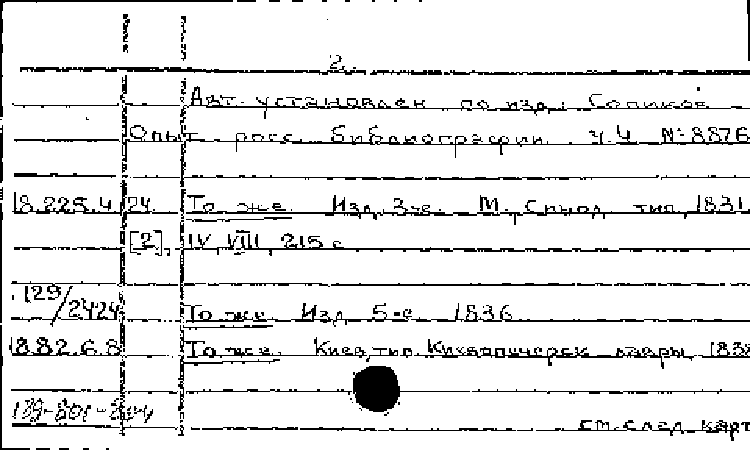 2.
Авт. установлен по изд.: Сопиков -
Опыт росс. библиографии. ч.4 №8876
18.225.4.24. То же. Изд. 3-е. М., Синод. тип., 1831.
[2], IV, VIII, 215 с.
129/2424 То же. Изд. 5-е. 1836
18.82.6.8 То же. Киев, тип. Киевопечерск. лавры, 183
139-801-
см. след. карт